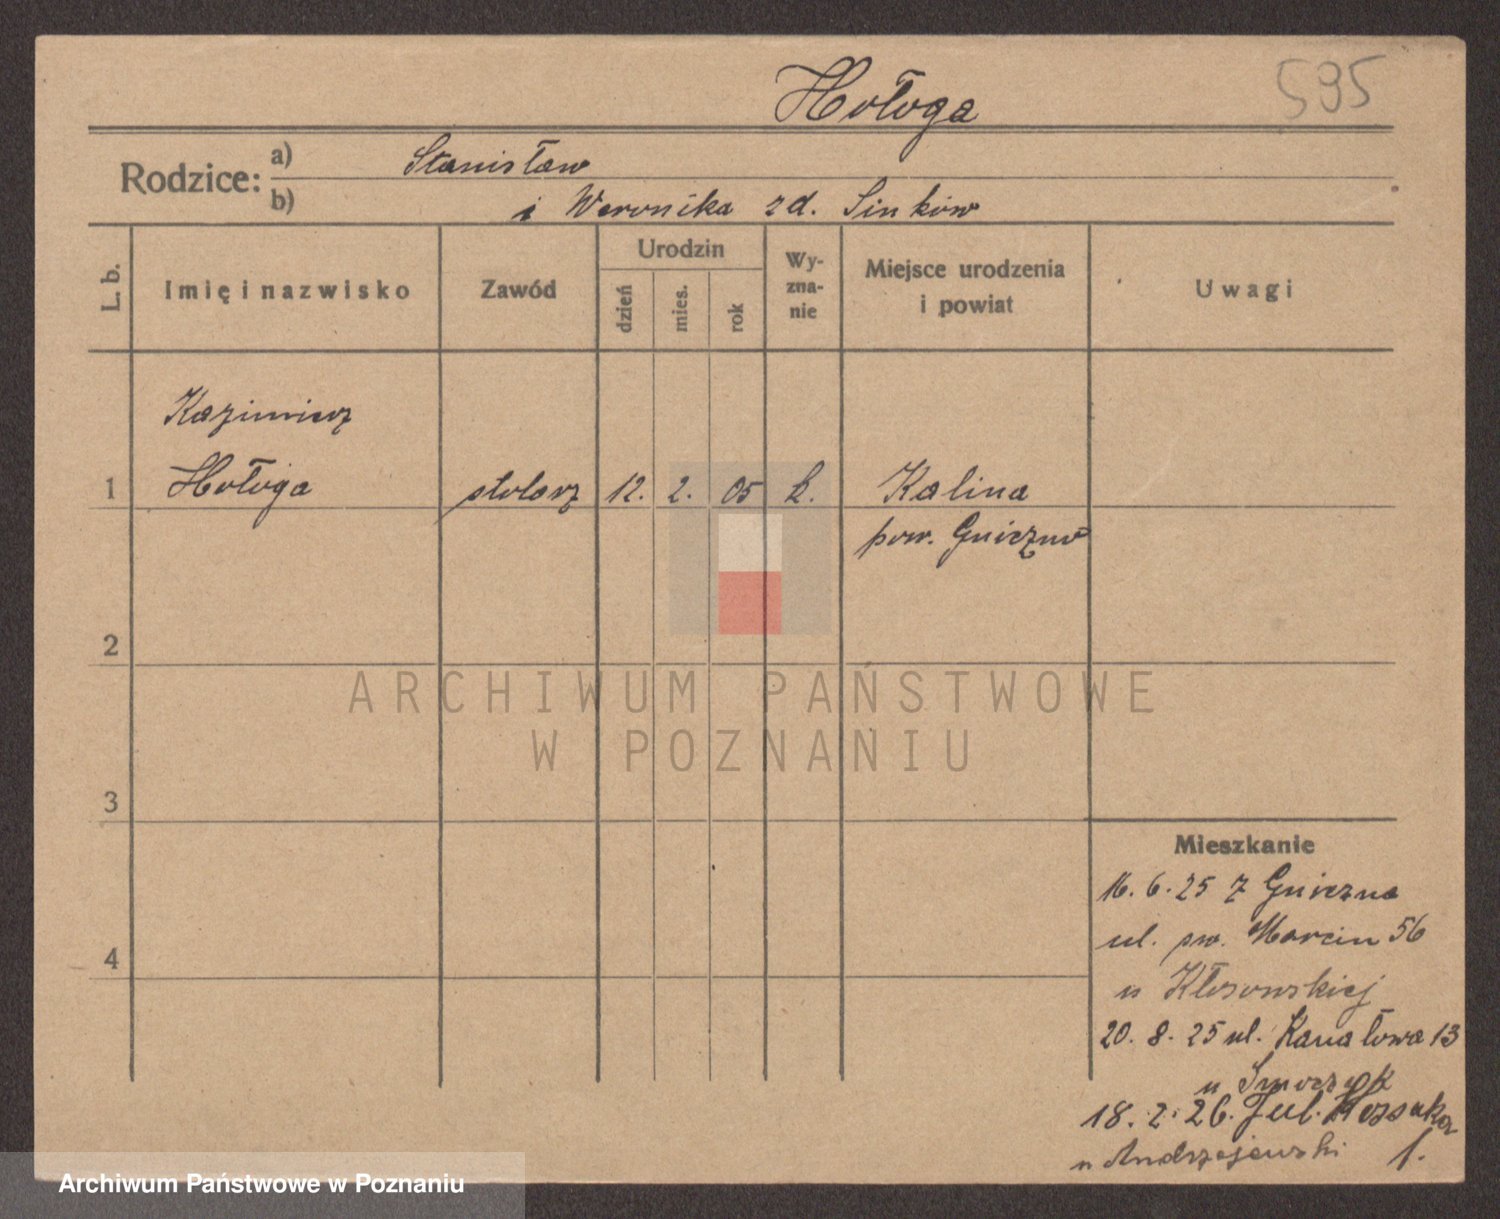 Hołoga
595
Rodzice:
a) Stanisław
b) i Weronika z d. Sinków
L. b.
Imię i nazwisko
Zawód
Urodzin
dzień
mies.
rok
Wy-
zna-
nie
Miejsce urodzenia
i powiat
Uwagi
Kazimierz
1 Hołoga stolarz 12. 2. 05 k. Kalina
pow. Gniezno
2
3
4
Mieszkanie
16. 6. 25 z Gniezna
ul. św. Marcin 56
u Kłosowskiej
20. 8. 25 ul. Kanałowa 13
u Smoczyk
18. 2. 26. Jul. Kossaka
u Andrzejewski 1.
ARCHIWUM PAŃSTWOWE
W POZNANIU
Archiwum Państwowe w Poznaniu